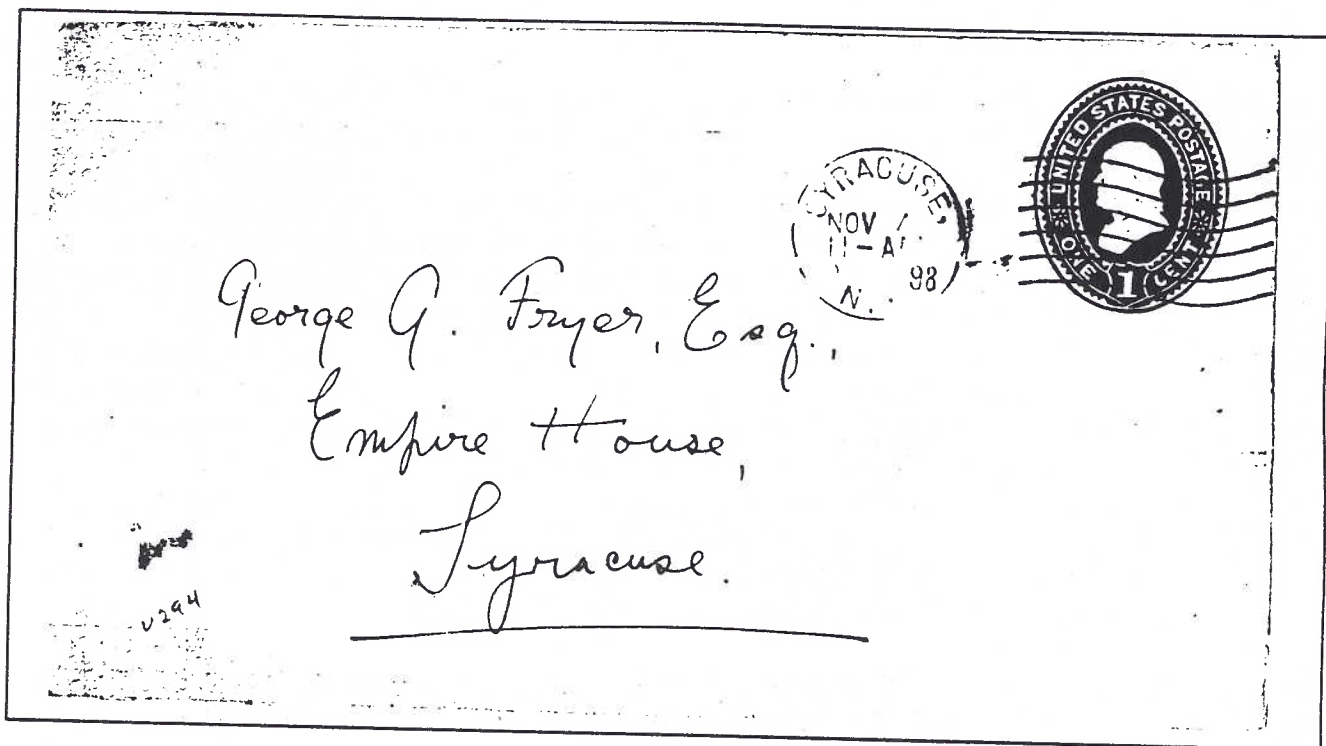 UNITED STATES POSTAGE
ONE 1 CENT
SYRACUSE,
NOV
11-A
98
N.
George G. Fryer, Esq.,
Empire House,
Syracuse.
U294